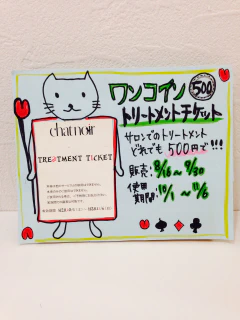 ワンコイン 500
トリートメントチケット
サロンでのトリートメント
どれでも500円で!!!
販売: 8/16〜9/30
使用期間: 10/1〜11/6
charnoir
TREATMENT TICKET